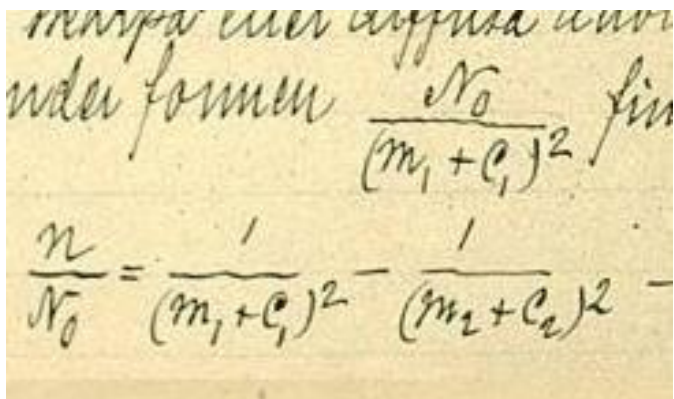 skarpa eller diffusa
under formen N₀/(m₁ + C₁)²
n/N₀ = 1/(m₁ + C₁)² − 1/(m₂ + C₂)² −